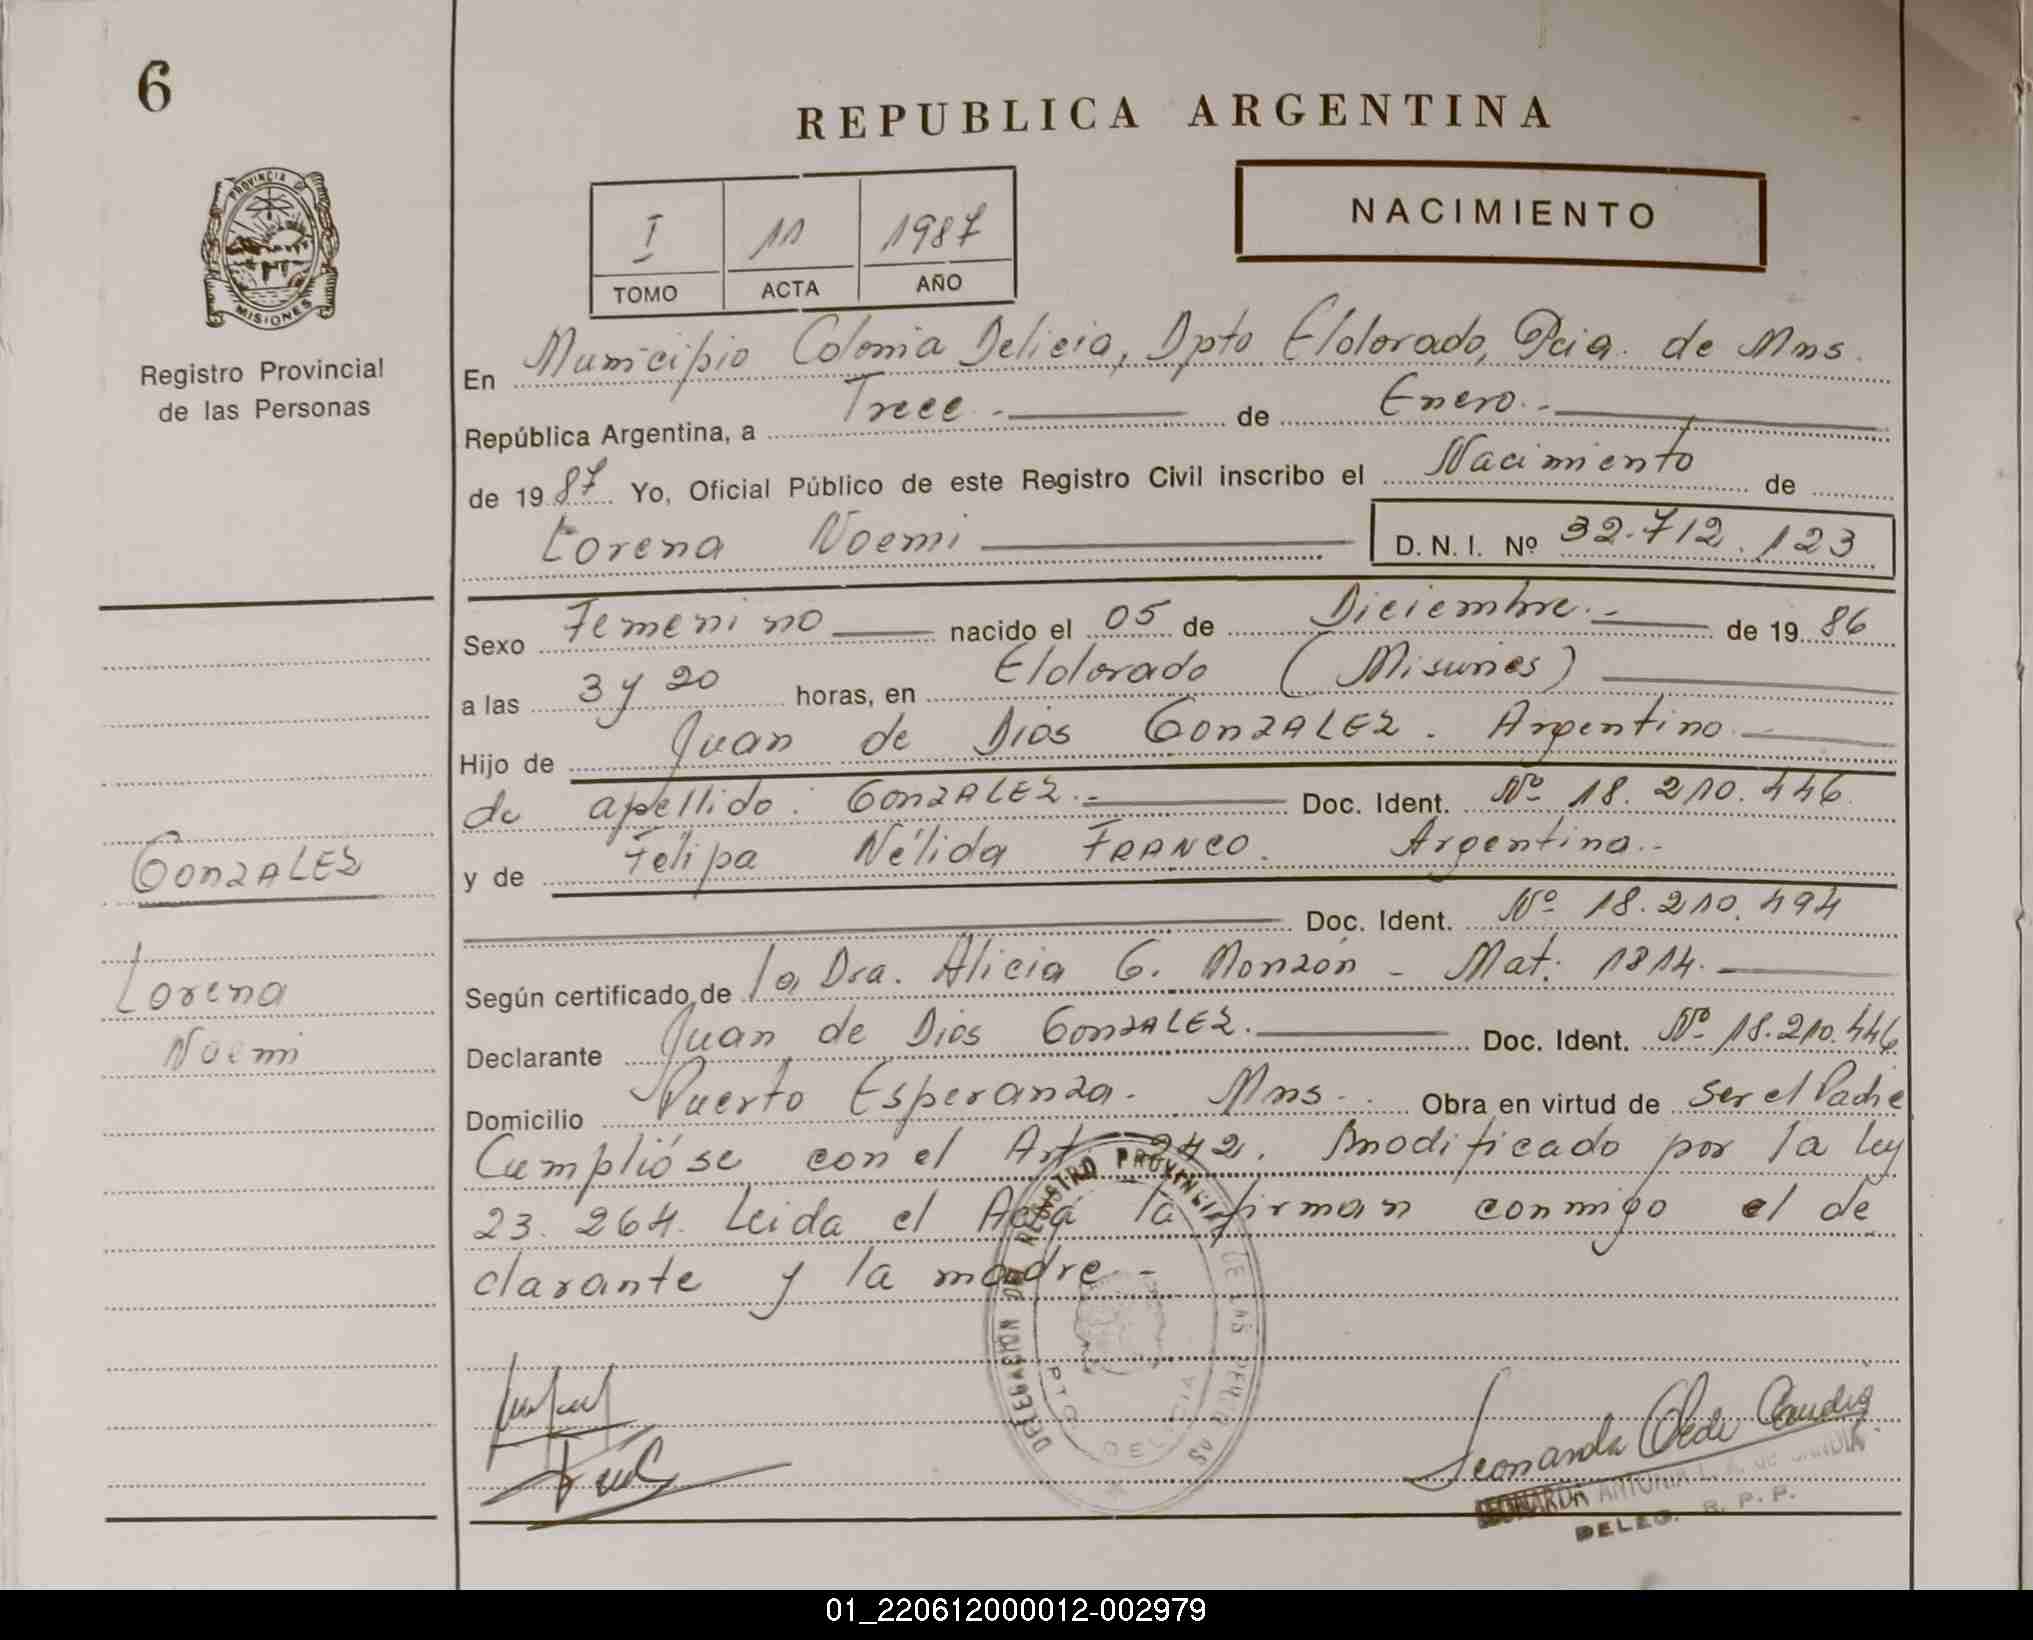 6
REPUBLICA ARGENTINA
PROVINCIA DE
MISIONES
Registro Provincial
de las Personas
I 11 1987
TOMO ACTA AÑO
NACIMIENTO
En Municipio Colonia Delicia, Dpto Eldorado, Pcia. de Mns.
República Argentina, a Trece.- de Enero.-
de 1987 Yo, Oficial Público de este Registro Civil inscribo el Nacimiento de
Lorena Noemi D. N. I. Nº 32.712.123
Sexo Femenino nacido el 05 de Diciembre.- de 1986
a las 3 y 20 horas, en Eldorado (Misiones)
Hijo de Juan de Dios GONZALEZ. Argentino
de apellido: GONZALEZ.- Doc. Ident. Nº 18.210.446.
y de Felipa Nélida FRANCO. Argentina.-
Doc. Ident. Nº 18.210.494
Según certificado de la Dra. Alicia G. Monzón - Mat: 1814.-
Declarante Juan de Dios GONZALEZ.- Doc. Ident. Nº 18.210.446
Domicilio Puerto Esperanza. Mns. Obra en virtud de ser el Padre
Cumplióse con el Art 242. modificado por la ley
23.264. Leida el Acta la firman conmigo el de
clarante y la madre.-
GONZALEZ
Lorena
Noemi
DELEGACION DE REGISTRO PROVINCIAL DE LAS PERSONAS
PTO. DELICIA
LEONARDA ANTONIA
DELEG. R. P. P.
01_220612000012-002979